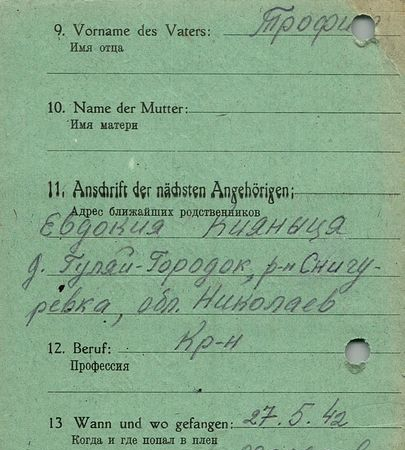 9. Vorname des Vaters: Трофим
Имя отца
10. Name der Mutter:
Имя матери
11. Anschrift der nächsten Angehörigen:
Адрес ближайших родственников
Евдокия Кияныца
д. Гуляй-Городок, р-н Снигу-
ревка, обл. Николаев
12. Beruf: Кр-н
Профессия
13 Wann und wo gefangen: 27.5.42
Когда и где попал в плен